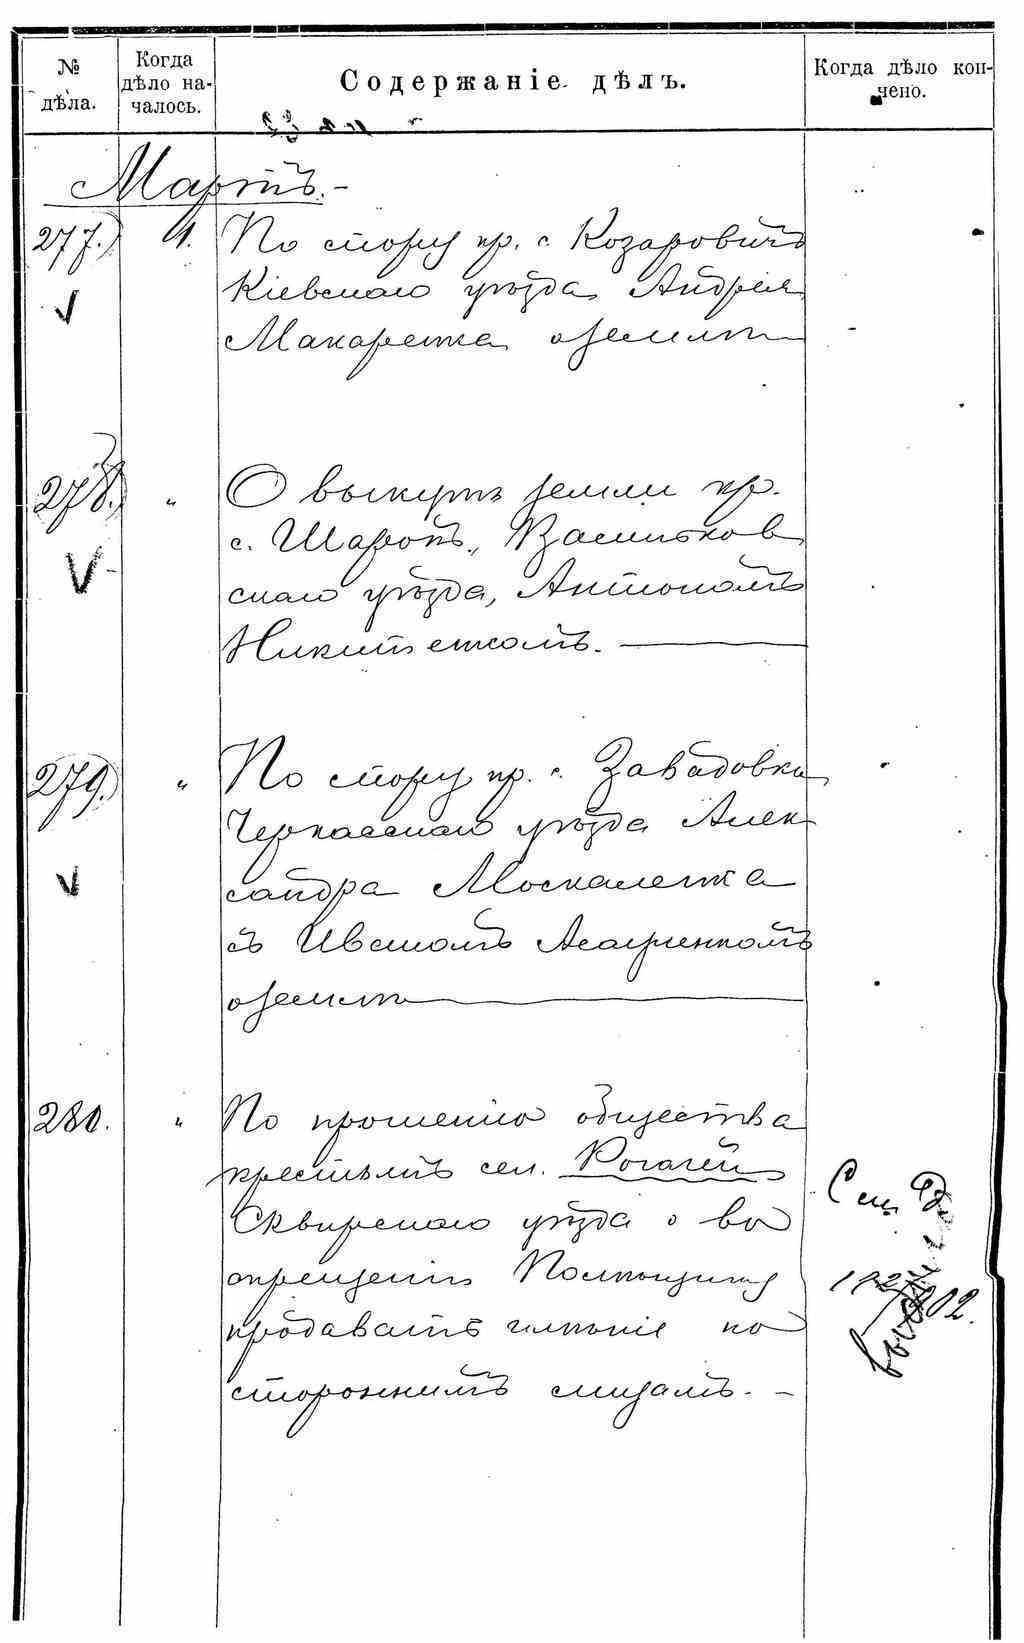 № дѣла.
Когда дѣло началось.
Содержаніе дѣлъ.
Когда дѣло кончено.
Мартъ. -
277.) 1. По спору кр. с. Козаровичъ
Кіевскаго уѣзда Андрея
Макаренка о землѣ
278.) " О выкупѣ земли кр.
с. Шарокъ, Васильков
скаго уѣзда, Антономъ
Никитенкомъ.
279.) " По спору кр. с. Завадовки
Черкасскаго уѣзда Алек
сандра Москаленка
съ Ивсиомъ
о землѣ
280. " По прошенію общества
крестьянъ сел. Рогачей
Сквирскаго уѣзда о во
спрещеніи Помѣщику
продавать имѣніе по
стороннимъ лицамъ. -